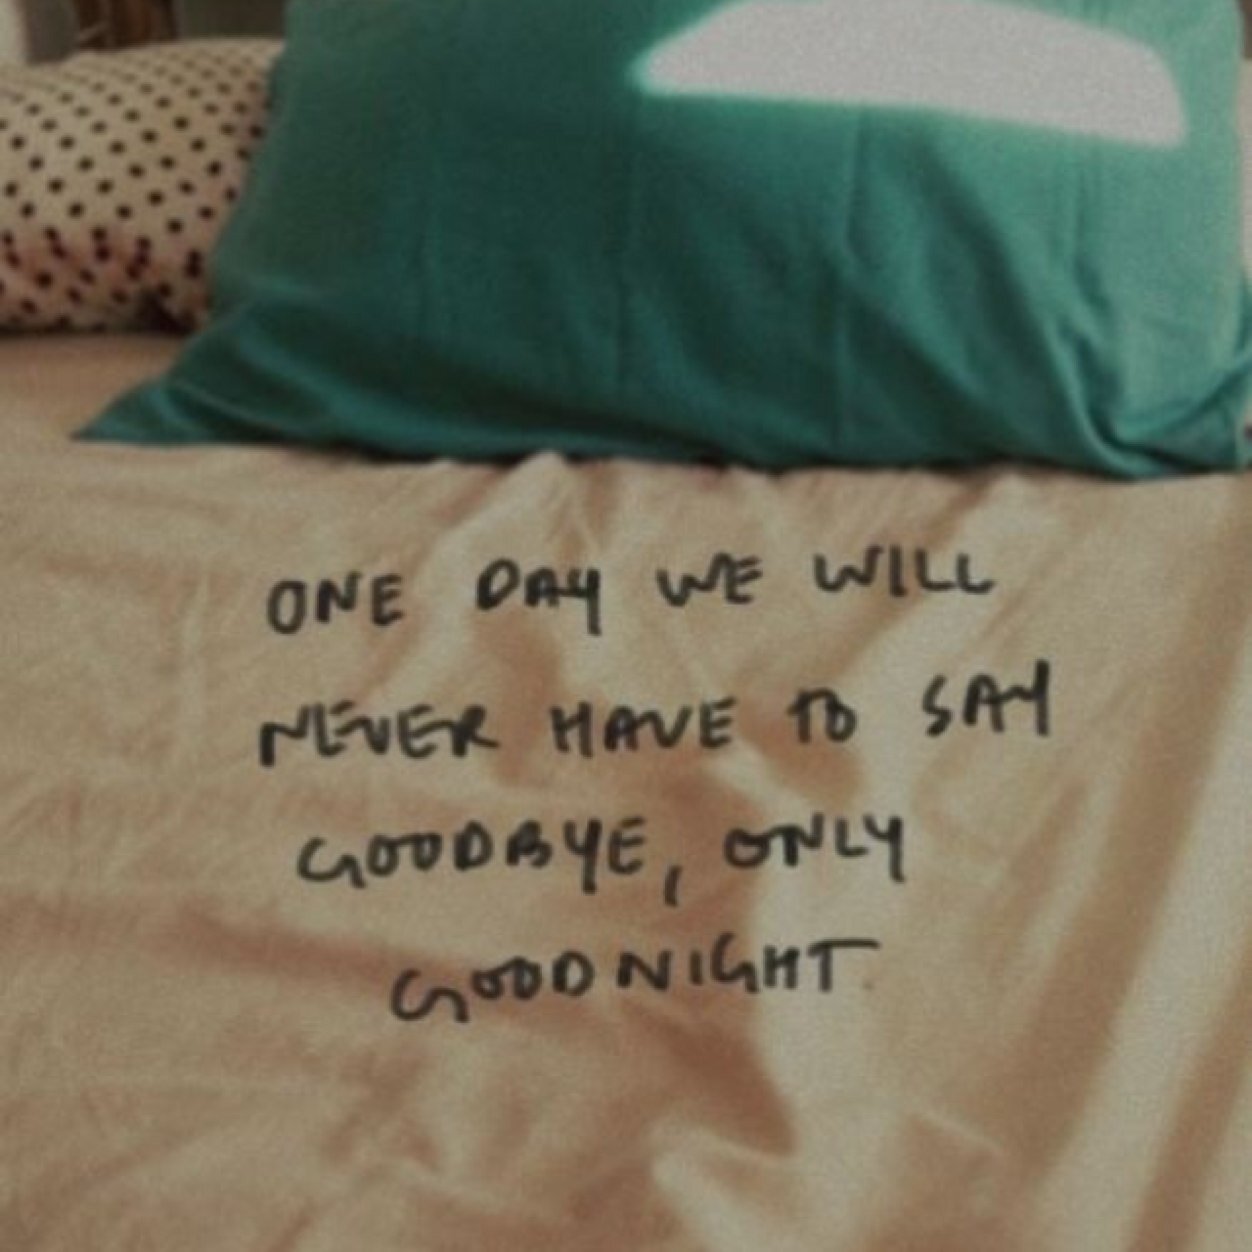 ONE DAY WE WILL
NEVER HAVE TO SAY
GOODBYE, ONLY
GOODNIGHT